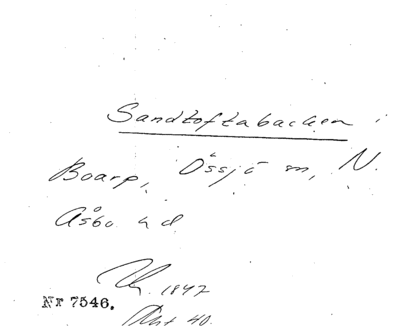 Sandtoftabacken i
Boarp, Össjö sn, N.
Åsbo hd.
1847
Nr 7546.
40.